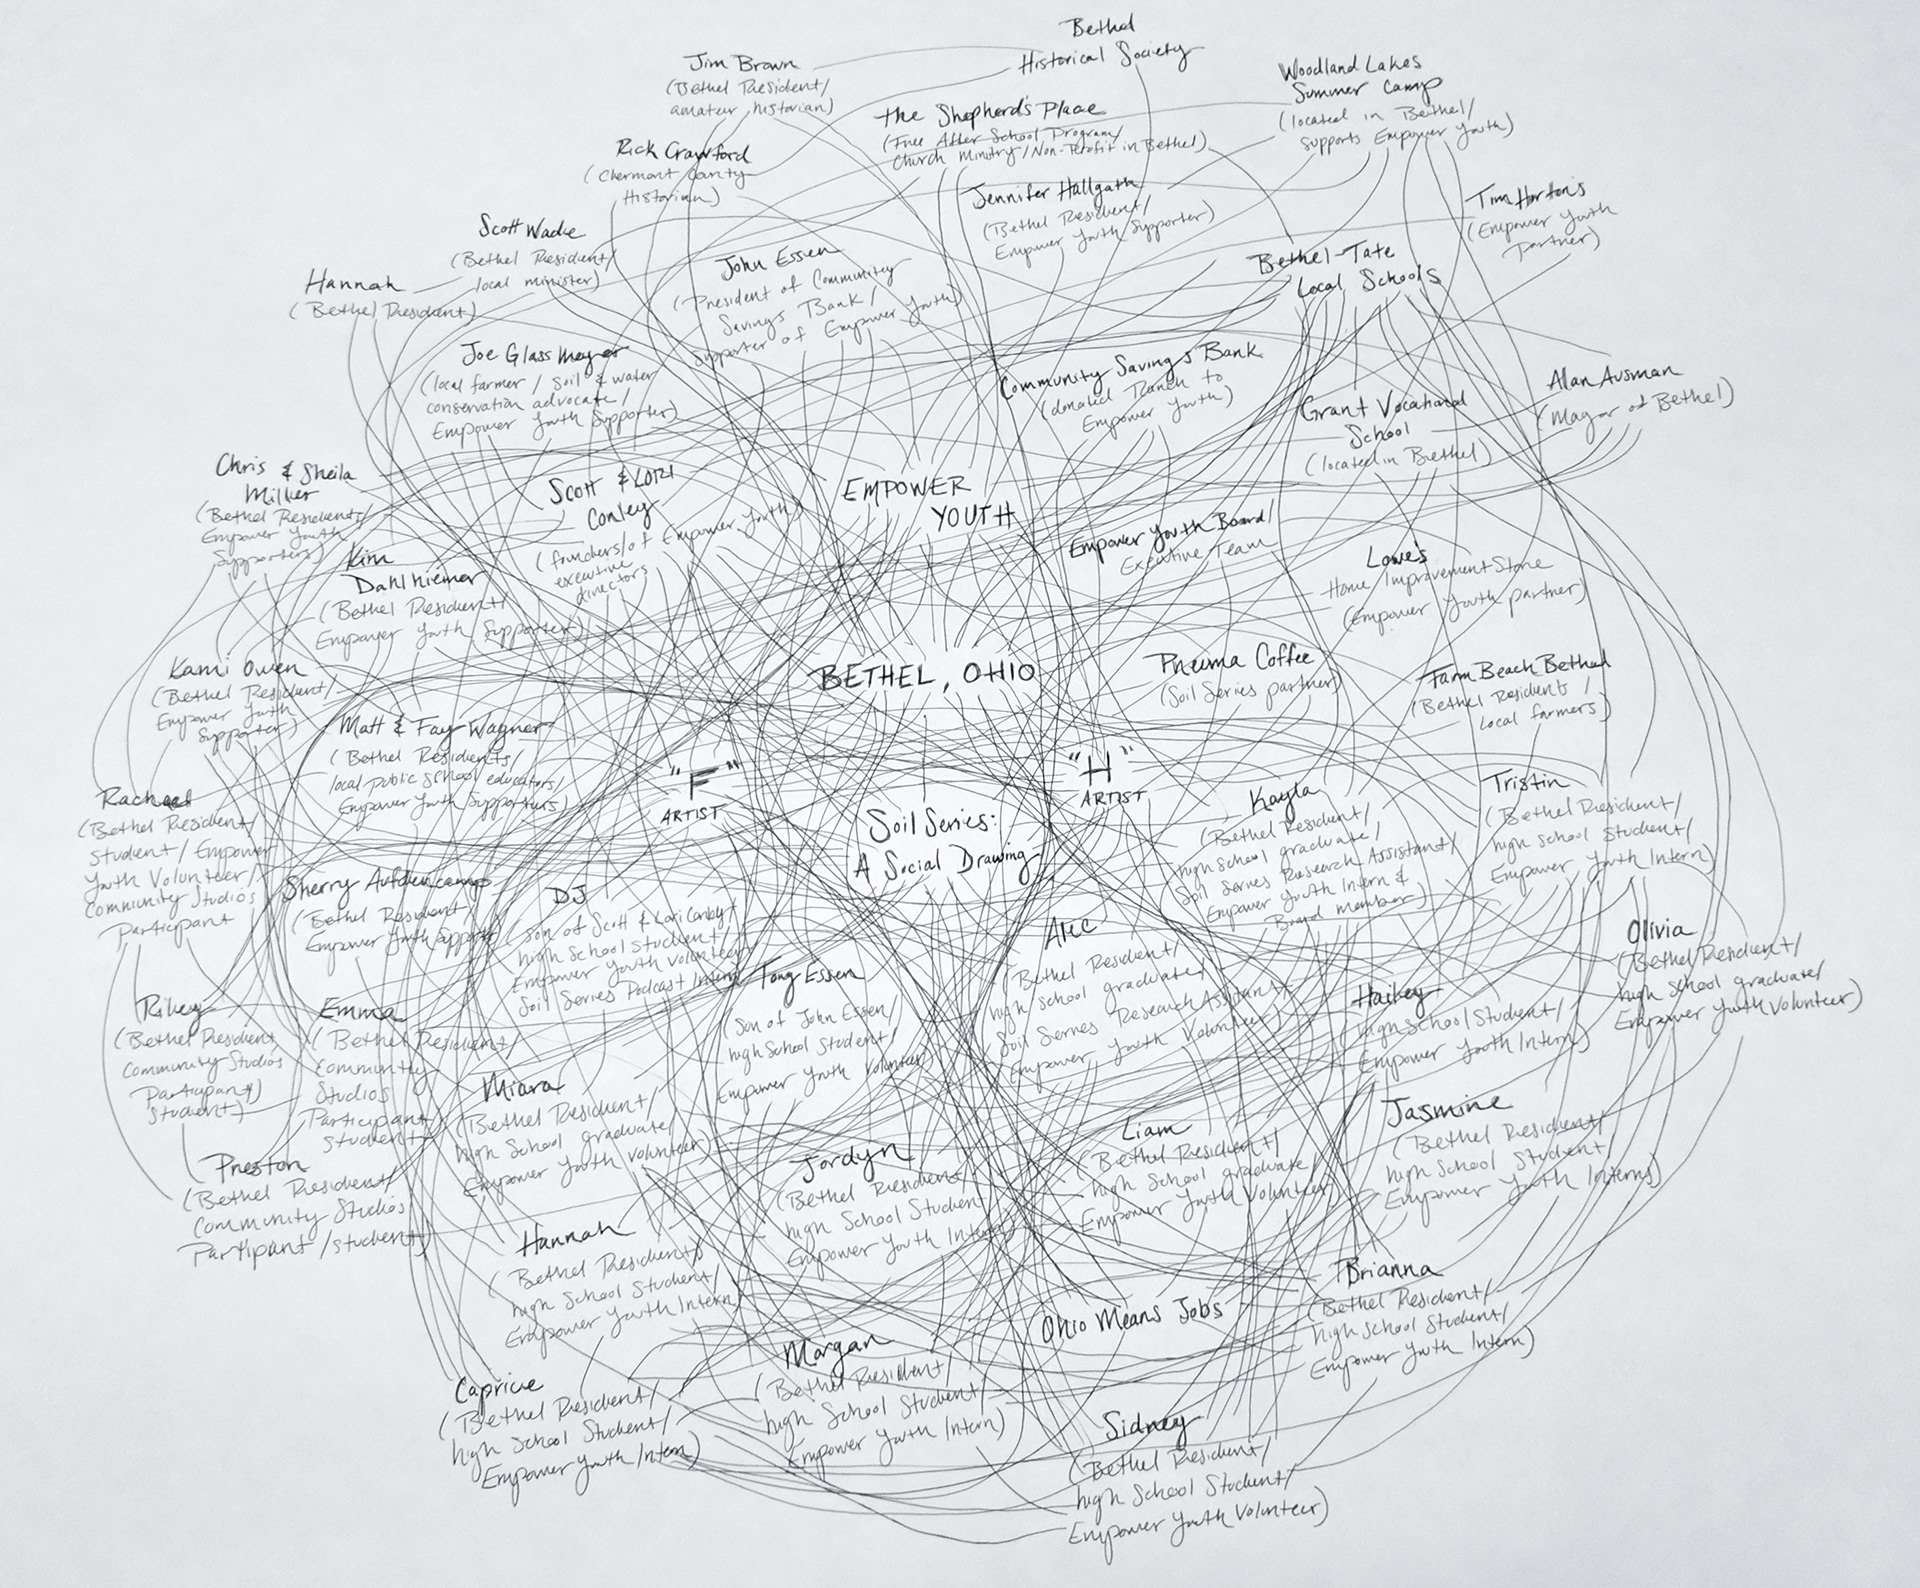 Bethel
Historical Society
Jim Brown
(Bethel Resident/
amateur historian)
Woodland Lakes
Summer Camp
(located in Bethel/
supports Empower Youth)
the Shepherd's Place
(Free After School Program/
Church Ministry/Non-Profit in Bethel)
Rick Crawford
(Clermont County
Historian)
Jennifer Hallgath
(Bethel Resident/
Empower Youth Supporter)
Tim Horton's
(Empower Youth
partner)
Scott Wade
(Bethel Resident/
local minister)
John Essen
(President of Community
Savings Bank/
supporter of Empower Youth)
Bethel-Tate
Local Schools
Hannah
(Bethel Resident)
Joe Glassmeyer
(local farmer/soil & water
conservation advocate/
Empower Youth Supporter)
Community Savings Bank
(donated Ranch to
Empower Youth)
Grant Vocational
School
(located in Bethel)
Alan Ausman
(Mayor of Bethel)
Chris & Sheila
Miller
(Bethel Residents/
Empower Youth
Supporters)
Scott & LORI
Conley
(founders/of Empower Youth
executive
directors
EMPOWER
YOUTH
Empower Youth Board/
Executive Team
Lowe's
Home Improvement Store
(Empower Youth partner)
Kim
Dahlhiemer
(Bethel Resident/
Empower Youth Supporter)
Kami Owen
(Bethel Resident/
Empower Youth
Supporter)
BETHEL, OHIO
Pneuma Coffee
(Soil Series partner)
Farm Beach Bethel
(Bethel Residents/
local farmers)
Matt & Fay Wagner
(Bethel Residents/
local public school educators/
Empower Youth Supporters)
"F"
ARTIST
"H"
ARTIST
Soil Series:
A Social Drawing
Kayla
(Bethel Resident/
high school graduate/
Soil Series Research Assistant/
Empower Youth Intern &
Board member)
Tristin
(Bethel Resident/
high school student/
Empower Youth Intern)
Rachael
(Bethel Resident/
student/Empower
Youth Volunteer/
Community Studios
Participant
Sherry Aufdencamp
(Bethel Resident/
Empower Youth Supporter)
DJ
(son of Scott & Lori Conley/
high school student/
Empower Youth volunteer
Soil Series Podcast Intern)
Alec
(Bethel Resident/
high school graduate/
Soil Series Research Assistant
Empower Youth Volunteer)
Olivia
(Bethel Resident/
high school graduate/
Empower Youth Volunteer)
Tony Essen
(son of John Essen/
high school student/
Empower Youth Volunteer)
Hailey
(high School Student/
Empower Youth Intern)
Riley
(Bethel Resident
Community Studios
Participant)
student)
Emma
(Bethel Resident/
Community
Studios
Participant)
student)
Miara
(Bethel Resident/
high School graduate/
Empower Youth Volunteer)
Jordyn
(Bethel Resident
high School Student
Empower Youth Intern)
Liam
(Bethel Resident/
high School graduate/
Empower Youth Volunteer)
Jasmine
(Bethel Resident/
high School Student/
Empower Youth Interns)
Preston
(Bethel Resident/
Community Studios
Participant/student)
Hannah
(Bethel Resident/
high School Student/
Empower Youth Intern)
Brianna
(Bethel Resident/
high School Student/
Empower Youth Intern)
Ohio Means Jobs
Morgan
(Bethel Resident/
high School Student/
Empower Youth Intern)
Caprice
(Bethel Resident/
high School Student/
Empower Youth Intern)
Sidney
(Bethel Resident/
high School Student/
Empower Youth Volunteer)